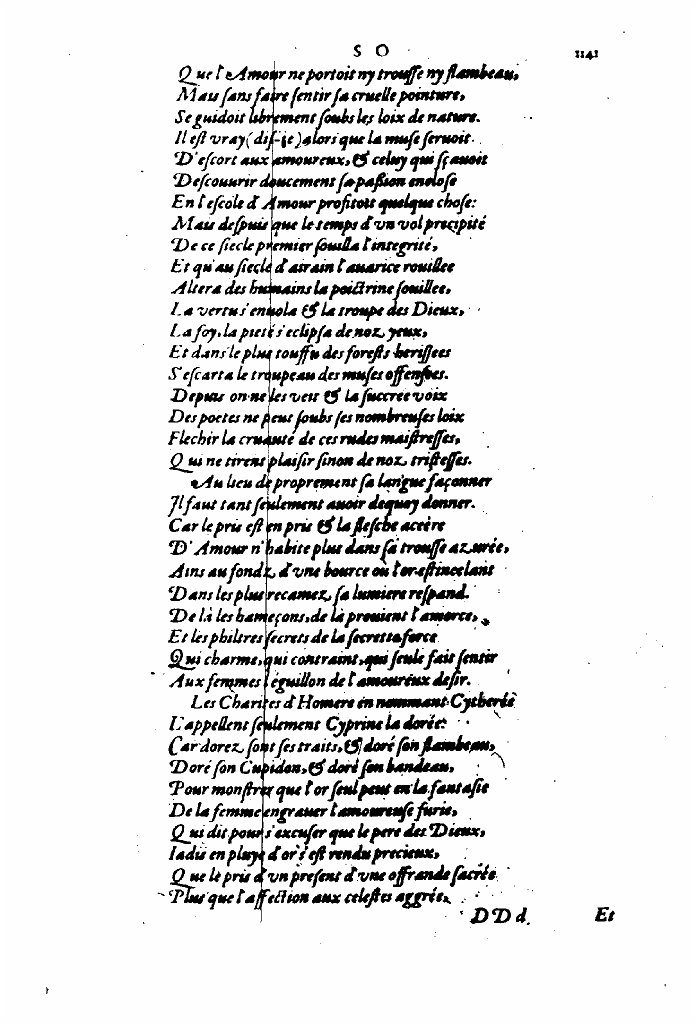 S O 1141
Que l'Amour ne portoit ny trousse ny flambeau,
Mais sans faire sentir sa cruelle pointure,
Se guidoit librement soubs les loix de nature.
Il est vray (dis-ie) alors que la muse seruoit
D'escort aux amoureux, & celuy qui sçauoit
Descouurir doucement sa passion enclose
En l'escole d'Amour profitoit quelque chose:
Mais despuis que le temps d'vn vol precipité
De ce siecle premier souilla l'integrité,
Et qu'au siecle d'airain l'auarice rouillee
Altera des humains la poictrine souillee,
La vertu s'enuola & la troupe des Dieux,
La foy, la pieté s'eclipsa de noz yeux,
Et dans le plus touffu des forests herissees
S'escarta le troupeau des muses offensees.
Depuis on ne les veit & la succree voix
Des poetes ne peut soubs ses nombreuses loix
Flechir la cruauté de ces rudes maistresses,
Qui ne tirent plaisir sinon de noz tristesses.
Au lieu de proprement sa langue façonner
Il faut tant seulement auoir dequoy donner.
Car le pris est en pris & la flesche acerée
D'Amour n'habite plus dans sa trousse azurée,
Ains au fondz d'vne bource où l'or estincelant
Dans les plus recamez sa lumiere respand.
De là les hameçons, de là prouient l'amorce,
Et les philtres secrets de la secrette force
Qui charme, qui contraint, qui seule fait sentir
Aux femmes l'eguillon de l'amoureux desir.
Les Charites d'Homere en nommant Cytherée
L'appellent seulement Cyprine la dorée:
Car dorez sont ses traits, & doré son flambeau,
Doré son Cupidon, & doré son bandeau,
Pour monstrer que l'or seul peut en la fantasie
De la femme engrauer l'amoureuse furie,
Qui dit pour s'excuser que le pere des Dieux,
Iadis en pluye d'or s'est rendu precieux,
Que le pris d'vn present d'vne offrande sacrée
Plus que l'affection aux celestes aggrée,
DDd. Et